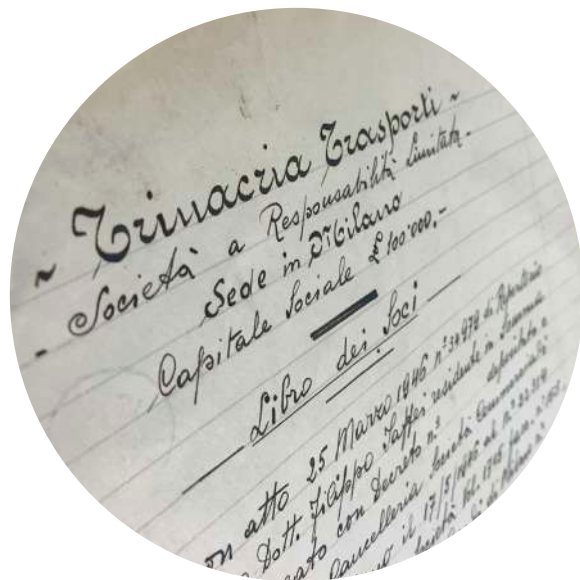 ~ Trinacria Trasporti ~
- Società a Responsabilità Limitata -
Sede in Milano
Capitale Sociale £ 100.000.-
Libro dei Soci
on atto 25 Marzo 1946 n° 34974 di Repertorio
Dott. Filippo residente in
ato con Decreto n° depositato e
Cancelleria Società Commerciali
il 17/5/1946 al n°